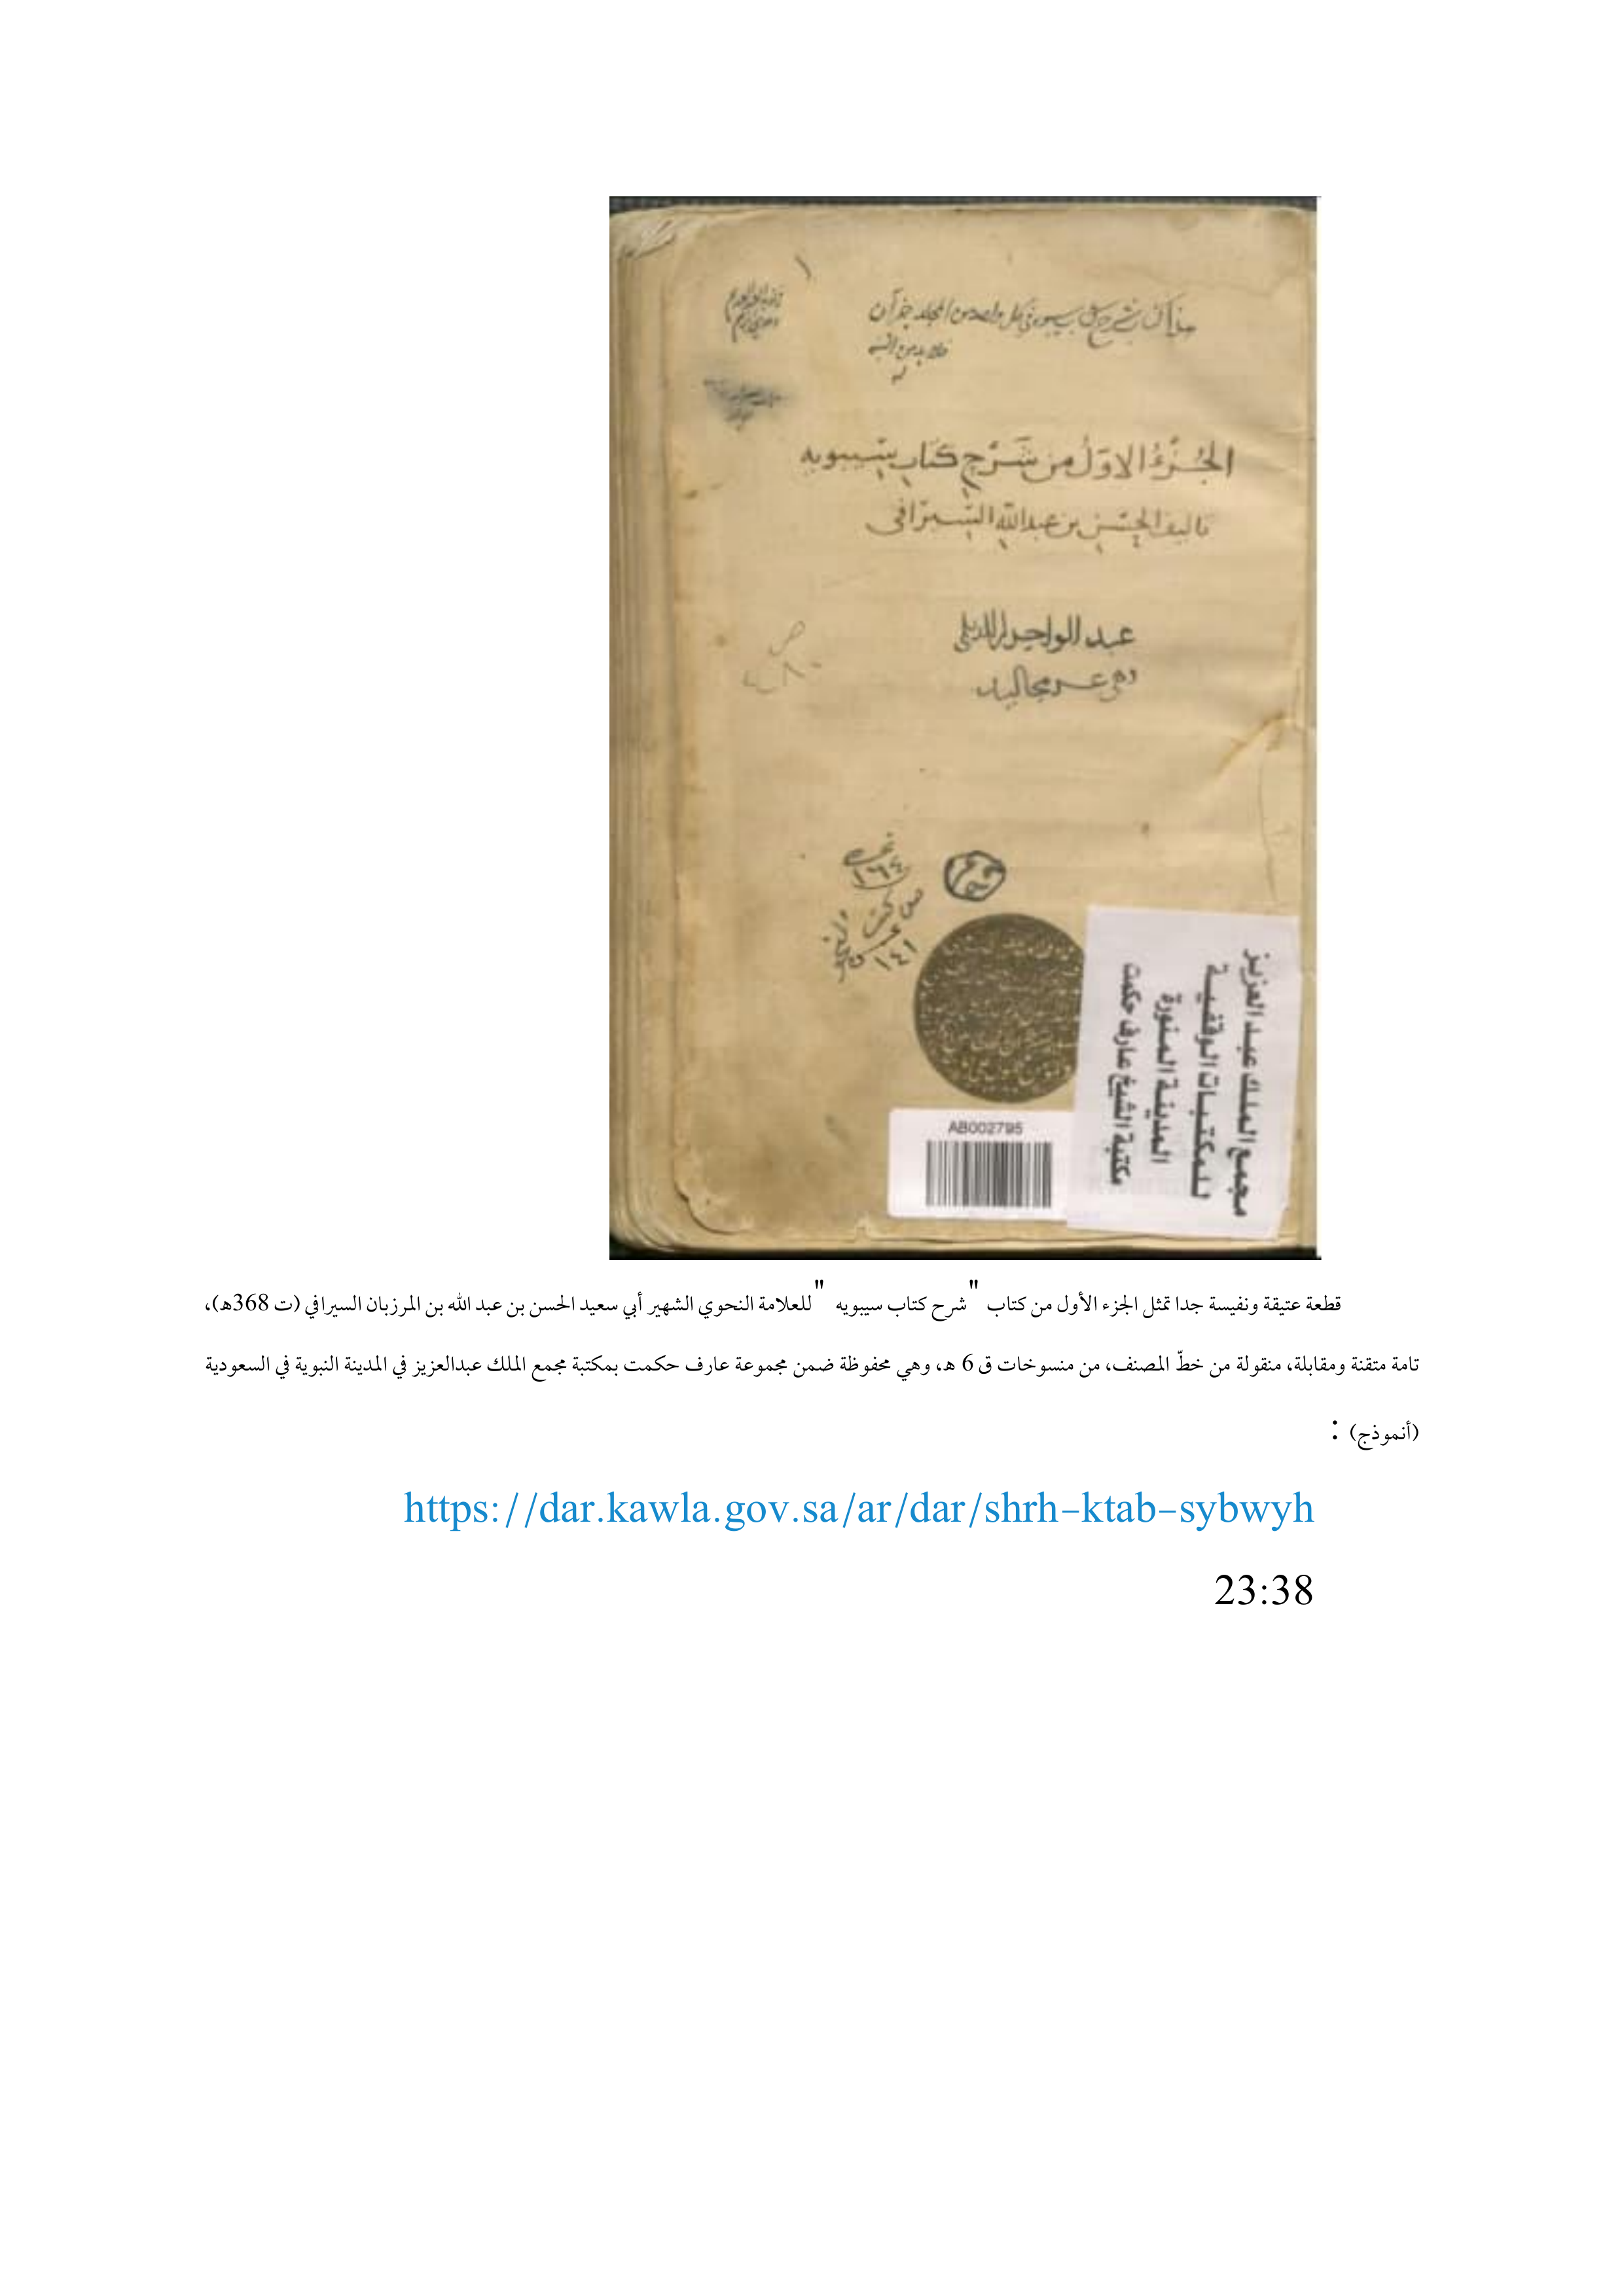 ١
هذا كتاب شرح سيبويه في كل واحد من المجلد جزآن
الجُزْءُ الاوّلُ مِن شَرْحِ كتَابِ سِيبويه
تاليف الحسَن بن عبد اللهِ السِّيرَافى
عبد الواحد
ص
١٤١
مجمع الملك عبد العزيز
للمكتبات الوقفية
المدينة المنورة
مكتبة الشيخ عارف حكمت
AB002795
قطعة عتيقة ونفيسة جدا تمثل الجزء الأول من كتاب "شرح كتاب سيبويه" للعلامة النحوي الشهير أبي سعيد الحسن بن عبد الله بن المرزبان السيرافي (ت 368هـ)،
تامة متقنة ومقابلة، منقولة من خطّ المصنف، من منسوخات ق 6 هـ، وهي محفوظة ضمن مجموعة عارف حكمت بمكتبة مجمع الملك عبدالعزيز في المدينة النبوية في السعودية
(أنموذج) :
https://dar.kawla.gov.sa/ar/dar/shrh-ktab-sybwyh
23:38